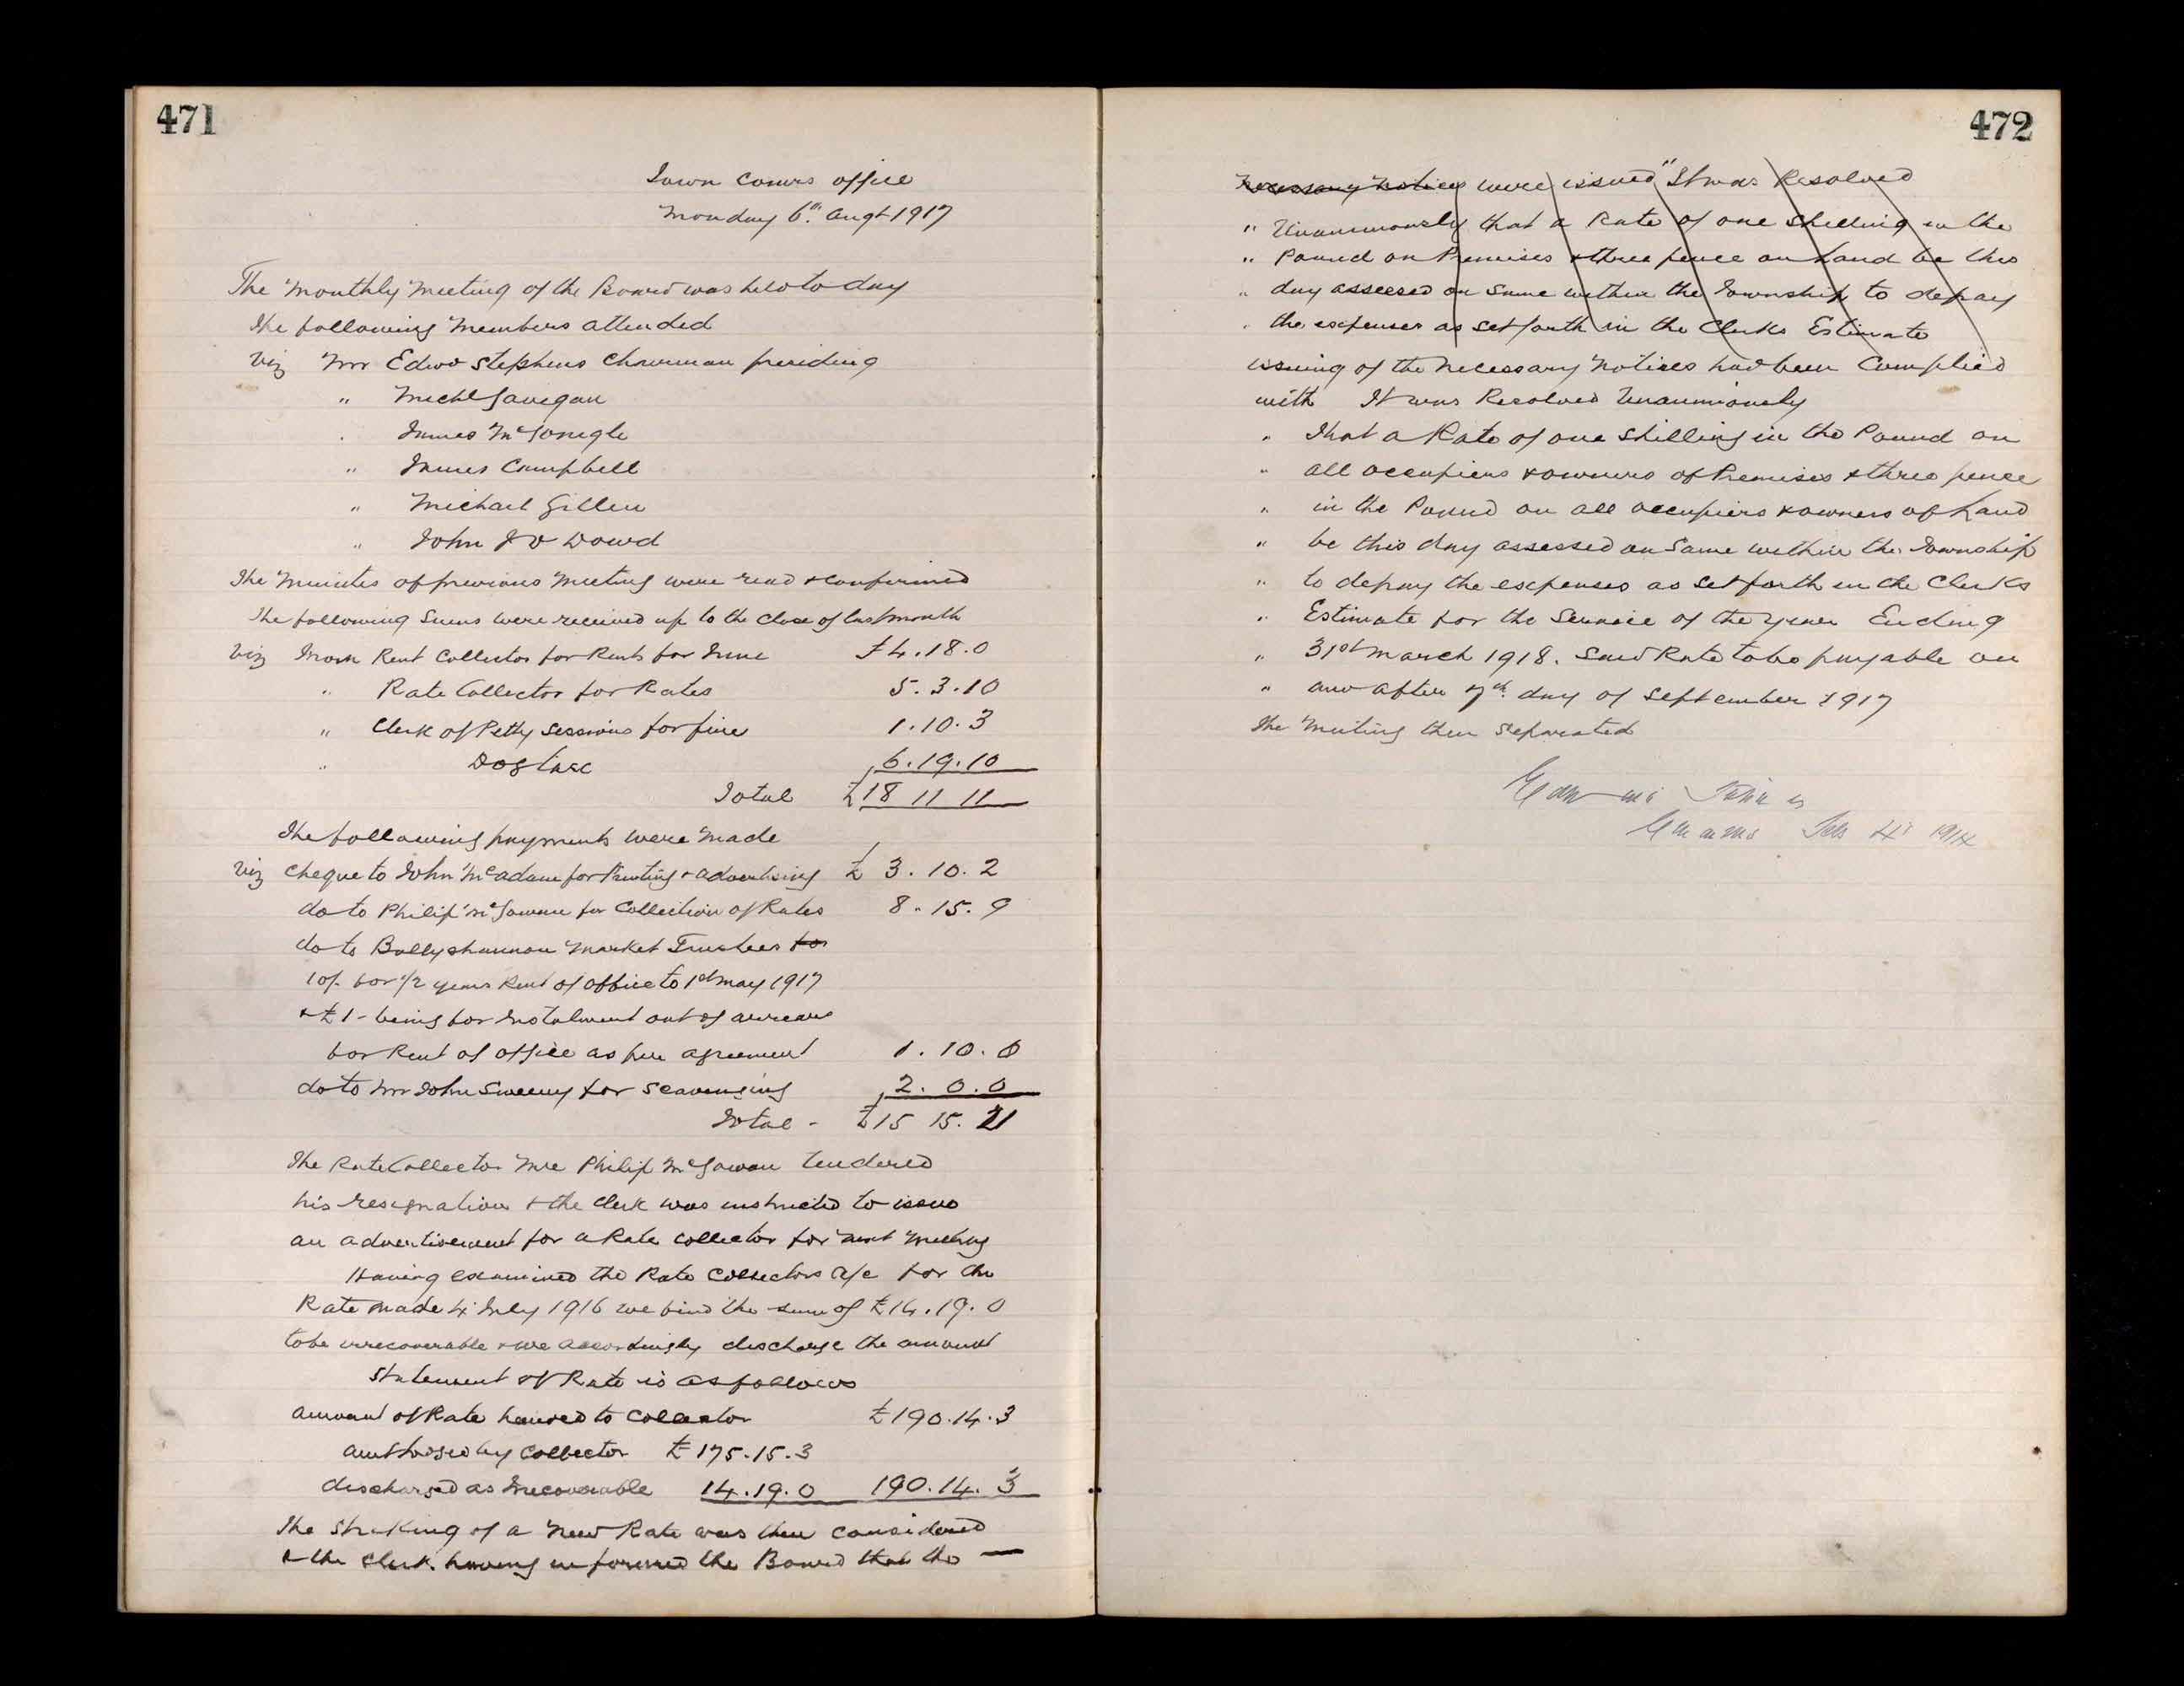 471
Town Comrs office
Monday 6th Augt 1917
The Monthly Meeting of the Board was held to day
The following Members attended
Viz Mr Edwd Stephens Chairman presiding
" Michl Gavegan
" James McGonigle
" James Campbell
" Michael Gillen
" John J O Dowd
The Minutes of previous Meeting were read & confirmed
The following Sums were received up to the close of last month
Viz From Rent Collector for Rents for June £4.18.0
" Rate Collector for Rates 5.3.10
" Clerk of Petty Sessions for fine 1.10.3
" Dog tax 6.19.10
Total £18 11 11
The following payments were made
Viz Cheque to John McAdam for Printing & advertising £3.10.2
do to Philip McGowan for Collection of Rates 8.15.9
do to Ballyshannon Market Trustees for
10/- for 1/2 years Rent of office to 1st May 1917
& £1 - being for Instalment out of arrears
for Rent of office as per agreement 1.10.0
do to Mr John Sweeny for Scavenging 2.0.0
Total - £15 15.11
The Rate Collector Mr Philip McGowan tendered
his resignation & the Clerk was instructed to issue
an advertisement for a Rate Collector for next Meeting
Having examined the Rate Collectors a/c for the
Rate made 4 July 1916 we find the sum of £14.19.0
to be irrecoverable & we accordingly discharge the amount
Statement of Rate is as follows
Amount of Rate handed to Collector £190.14.3
Amt lodged by Collector £175.15.3
discharged as Irrecoverable 14.19.0 190.14.3
The Striking of a New Rate was then considered
& the Clerk having informed the Board that the —
472
Necessary Notices were issued "It was Resolved
" Unanimously that a Rate of one shilling in the
" Pound on Premises & three pence on Land be this
" day assessed on Same within the Township to defray
" the expenses as set forth in the Clerks Estimate
issuing of the necessary Notices had been Complied
with It was Resolved Unanimously
" That a Rate of one Shilling in the Pound on
" all occupiers & owners of Premises & three pence
" in the Pound on all occupiers & owners of Land
" be this day assessed on Same within the Township
" to defray the expenses as set forth in the Clerks
" Estimate for the Service of the year Ending
" 31st March 1918. Said Rate to be payable on
" and after 7th day of September 1917
The Meeting then Separated